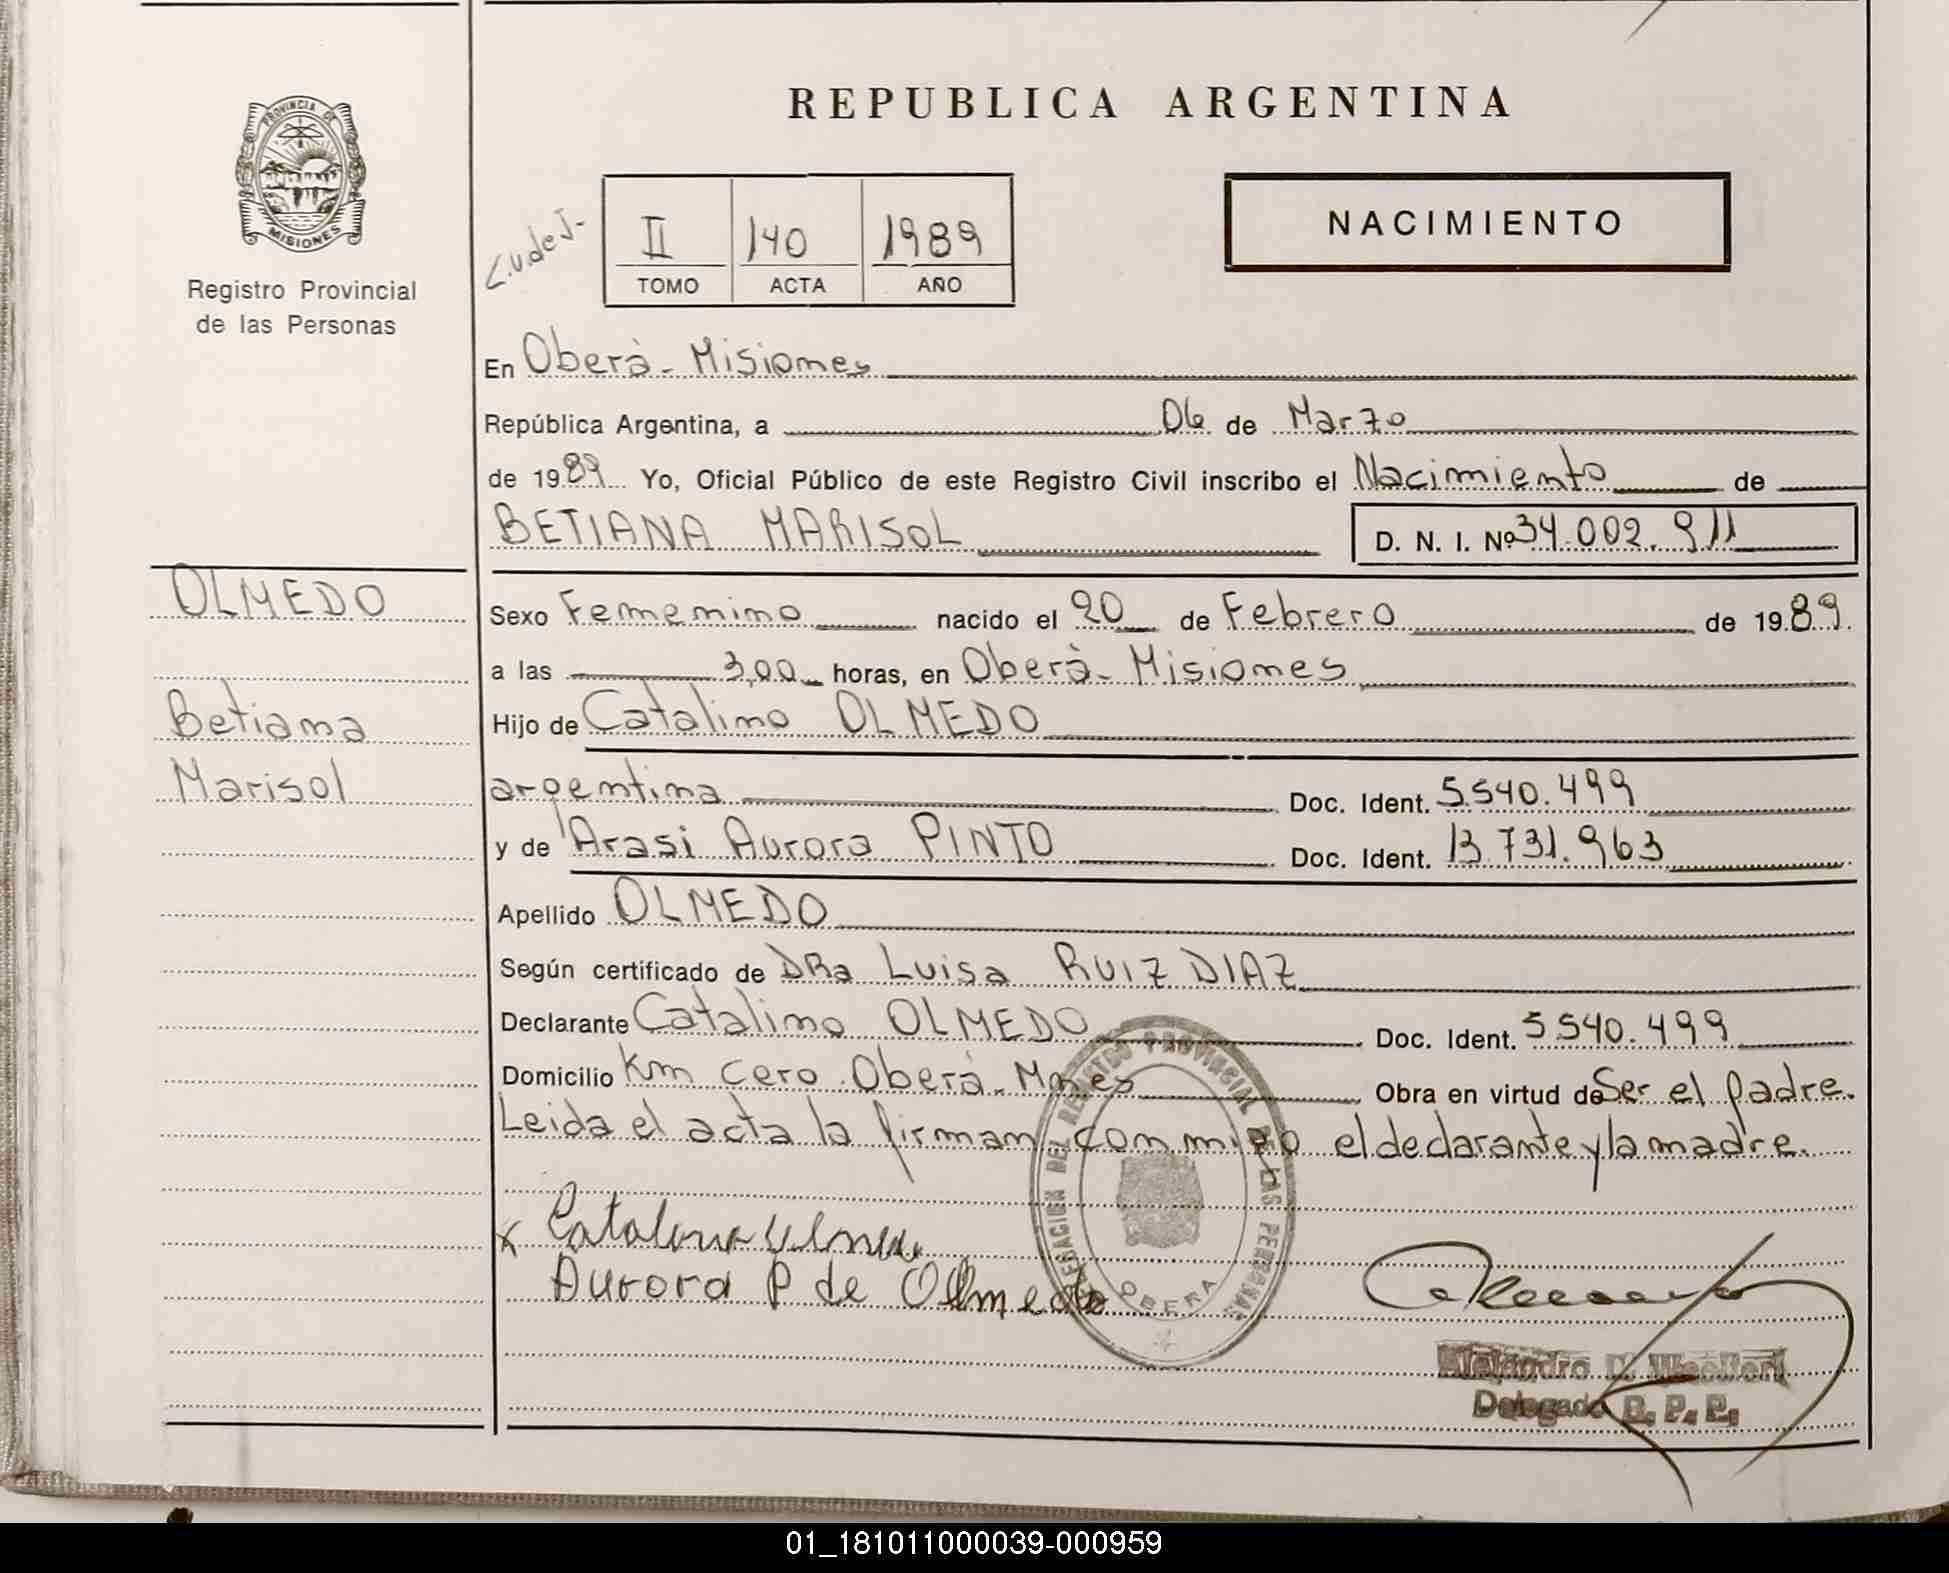 REPUBLICA ARGENTINA
PROVINCIA DE
MISIONES
Registro Provincial
de las Personas
L.V. de J-
II 140 1989
TOMO ACTA AÑO
NACIMIENTO
En Oberà - Misiones
República Argentina, a 06 de Marzo
de 1989 Yo, Oficial Público de este Registro Civil inscribo el Nacimiento de
BETIANA MARISOL D. N. I. Nº 34.002.911
OLMEDO
Betiana
Marisol
Sexo Femenino nacido el 20 de Febrero de 1989.
a las 3,00 horas, en Oberà - Misiones
Hijo de Catalino OLMEDO
argentina Doc. Ident. 5.540.499
y de Arasi Aurora PINTO Doc. Ident. 13.731.963
Apellido OLMEDO
Según certificado de DRa Luisa RUIZ DIAZ
Declarante Catalino OLMEDO Doc. Ident. 5.540.499
Domicilio Km cero. Oberà - Mnes Obra en virtud de Ser el padre.
Leida el acta la firman conmigo el declarante y la madre.
DELEGACION DEL REGISTRO PROVINCIAL DE LAS PERSONAS
OBERA
x Catalino Olmedo
Aurora P de Olmedo
Alejandro
Delegado R. P. P.
01_181011000039-000959